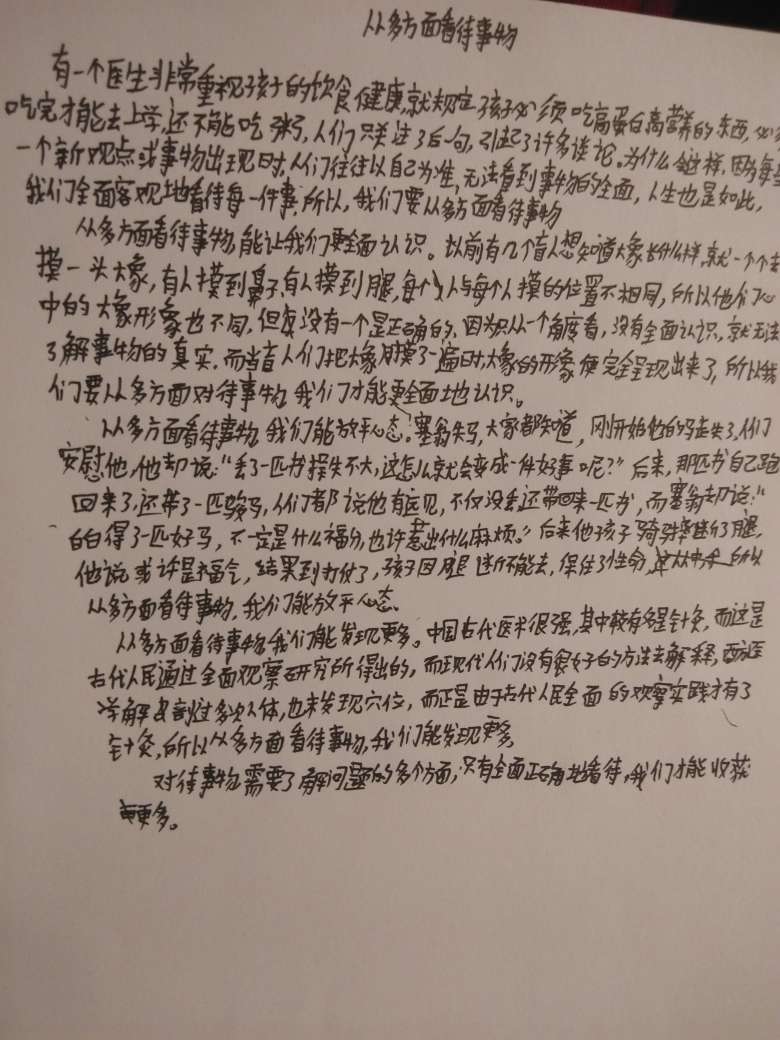 从多方面看待事物
有一个医生非常重视孩子的饮食健康,就规定孩子必须吃高蛋白高营养的东西,必须
吃完才能去上学,还不能吃粥,人们只关注了后一句,引起了许多谈论。为什么会这样,因为每当
一个新观点或事物出现时,人们往往以自己为准,无法看到事物的全面,人生也是如此,
我们全面客观地看待每一件事,所以,我们要从多方面看待事物
从多方面看待事物,能让我们更全面认识。以前有几个盲人想知道大象长什么样,就一个个去
摸一头大象,有人摸到鼻子,有人摸到腿,每个人与每个人摸的位置不相同,所以他们心
中的大象形象也不同,但没有一个是正确的,因为只从一个角度看,没有全面认识,就无法
了解事物的真实,而当盲人们把大象摸了一遍时,大象的形象便完全呈现出来了,所以我
们要从多方面对待事物,我们才能更全面地认识。
从多方面看待事物,我们能放平心态。塞翁失马,大家都知道,刚开始他的马走失了,人们
安慰他,他却说:“丢了一匹马损失不大,这怎么就会变成一件好事呢?”后来,那匹马自己跑
回来了,还带了一匹骏马,人们都说他有远见,不仅没丢还带回来一匹马,而塞翁却说:“
白白得了一匹好马,不一定是什么福分,也许惹出什么麻烦。”后来他孩子骑马摔断了腿,
他说或许是福气,结果到打仗了,孩子因腿断不能去,保住了性命,所以
从多方面看待事物,我们能放平心态。
从多方面看待事物,我们能发现更多。中国古代医术很强,其中较有名是针灸,而这是
古代人民通过全面观察研究所得出的,而现代人们没有很好的方法去解释,西医
学解剖过多次人体,也未发现穴位,而正是由于古代人民全面的观察实践才有了
针灸,所以从多方面看待事物,我们能发现更多,
对待事物需要了解问题的多个方面,只有全面正确地看待,我们才能收获
更多。